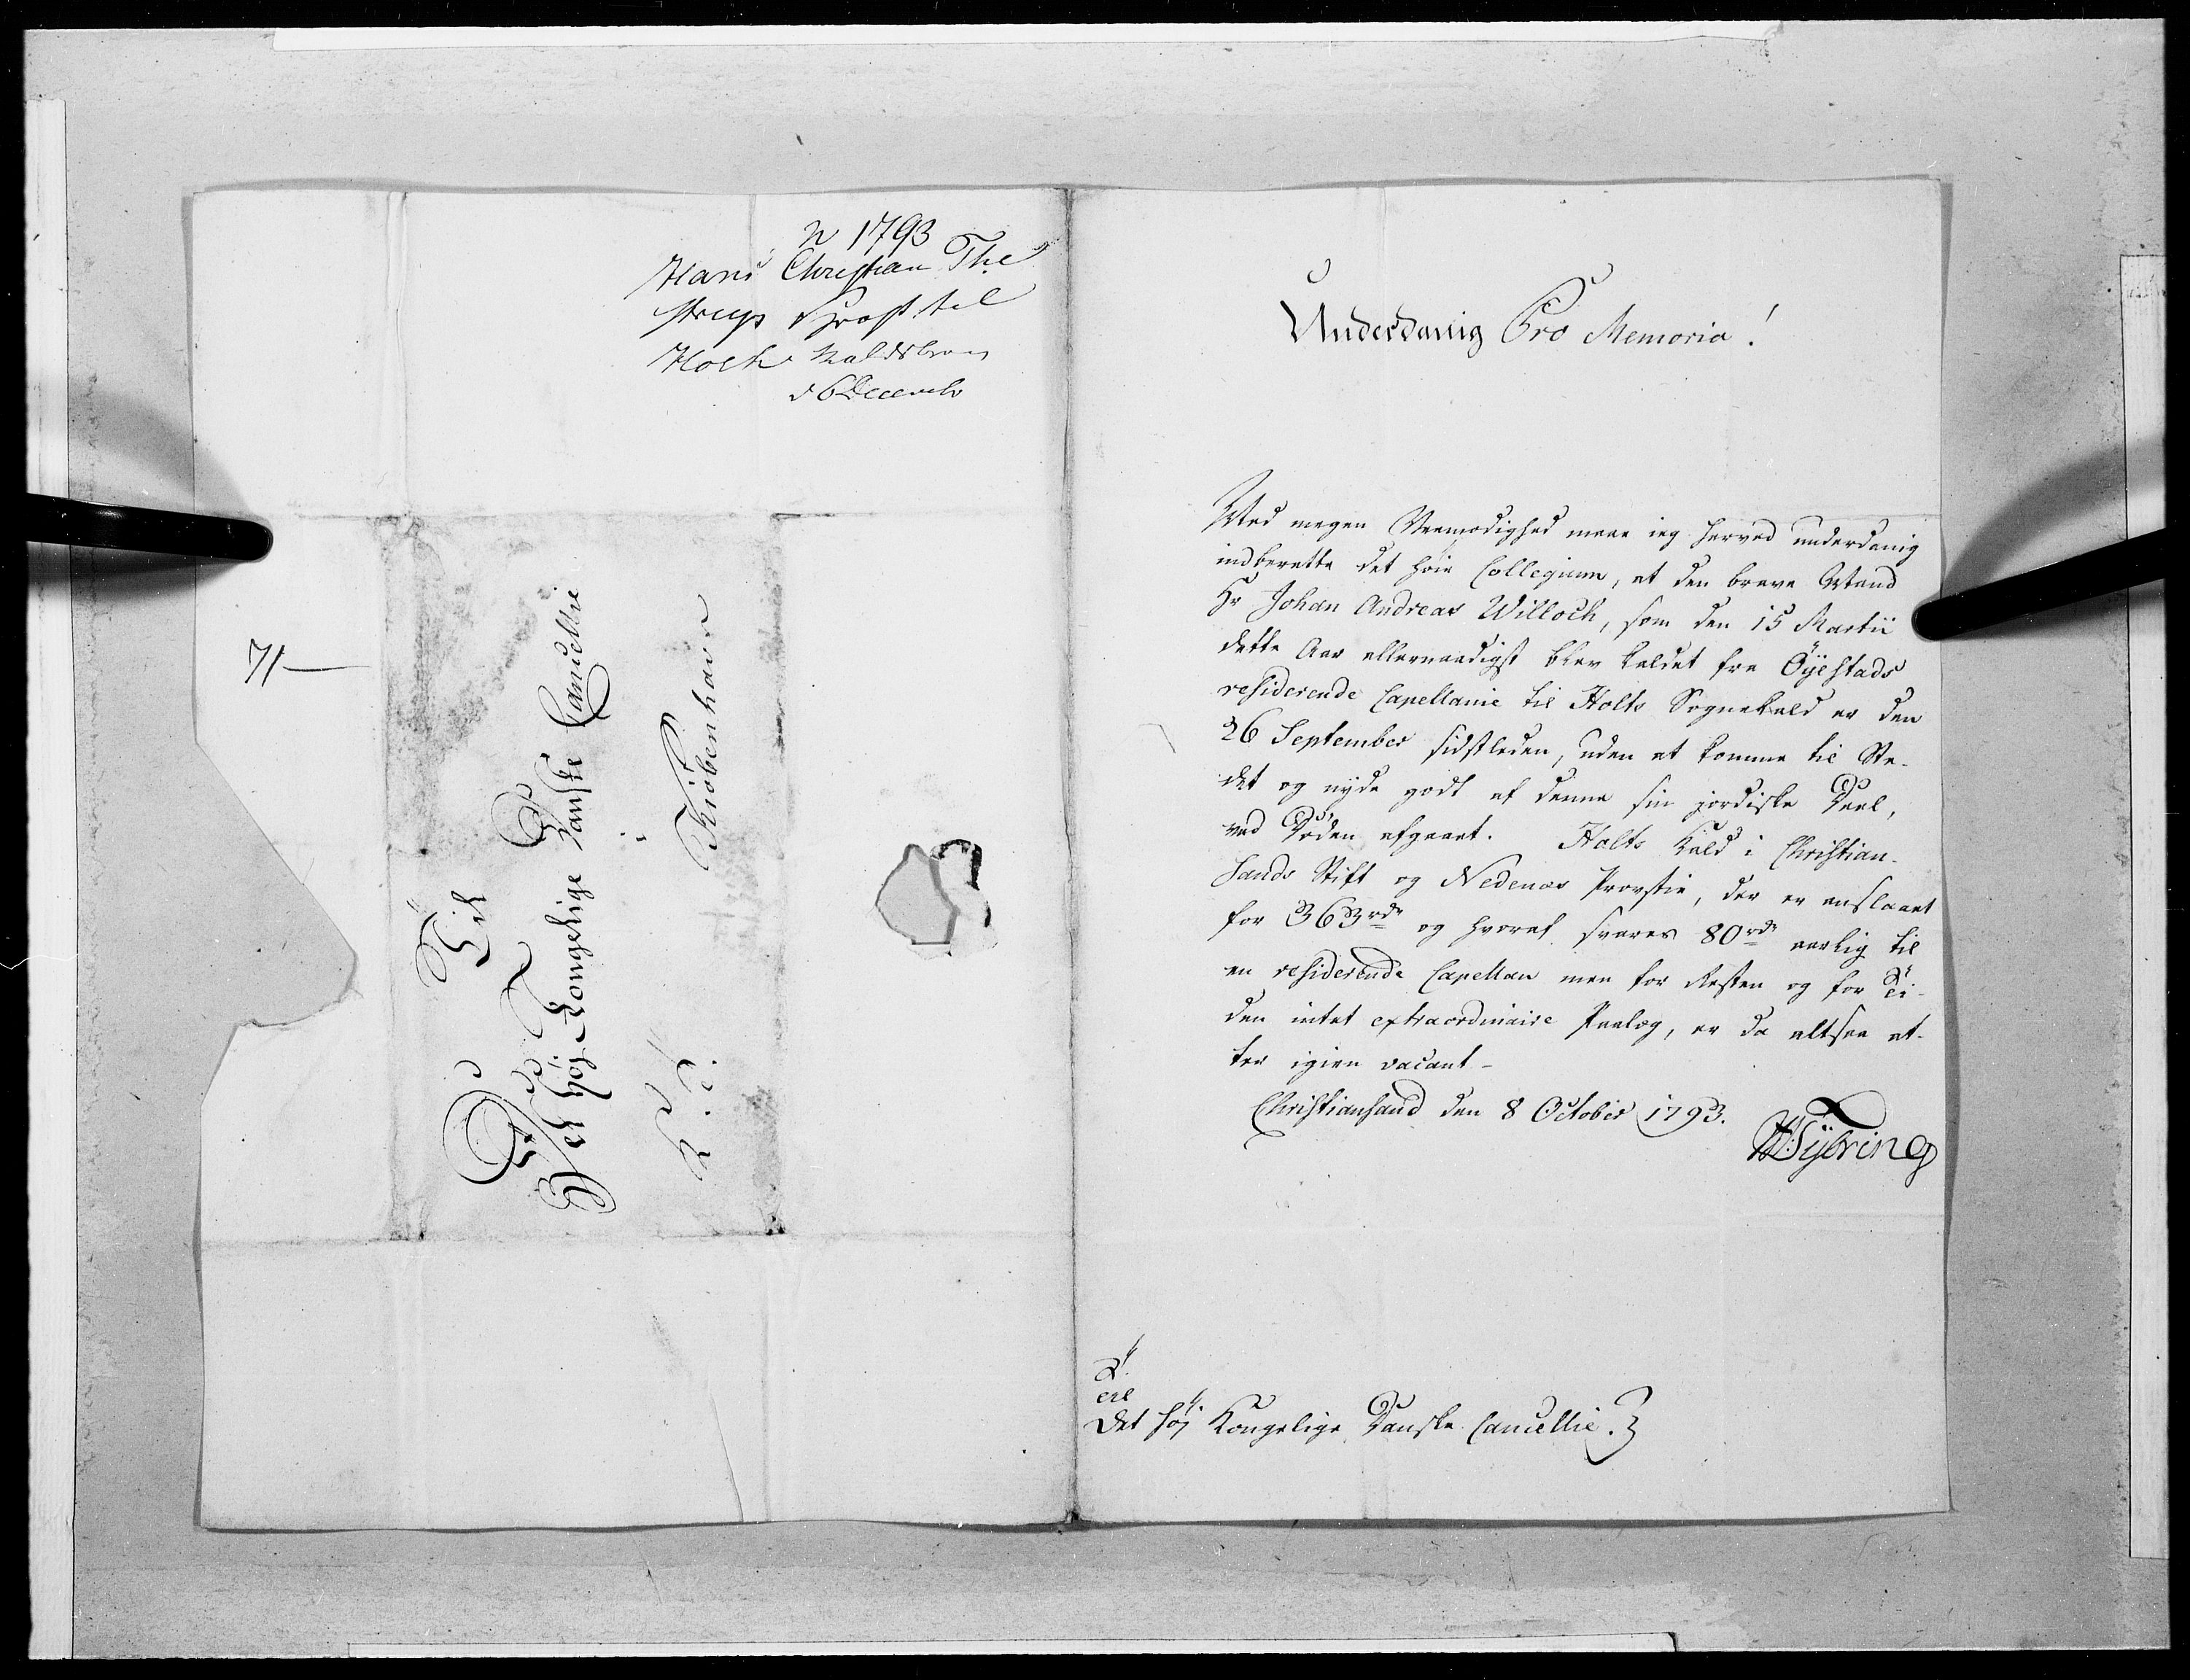 1793
Hans Christian The
strup Provst til
Holt
d 6 Decemb
71
Til
Det Høj-Kongelige Danske Cancellie
i
Kiøbenhavn
Underdanig Pro Memoria!
Med megen Veemodighed maae ieg herved underdanig
indberette det høie Collegium, at den brave Mand
Hr Johan Andreas Willoch, som den 15 Martii
dette Aar allernaadigst blev kaldet fra Öyestads
residerende Capellanie til Holts Sognekald er den
26 September sidstleden, uden at komme til Ste-
det og nyde godt af denne sin jordiske Deel,
ved Døden afgaaet. Holts Kald i Christian-
sands Stift og Nedenæs Provstie, der er anslaaet
for 363 rdr og hvoraf svares 80 rdr aarlig til
en residerende Capellan men for Resten og for Ti-
den intet extraordinaire Paalæg, er da altsaa at-
ter igien vacant-
Christiansand den 8 October 1793.
Tybring
Til
Det høj Kongelige Danske Cancellie.